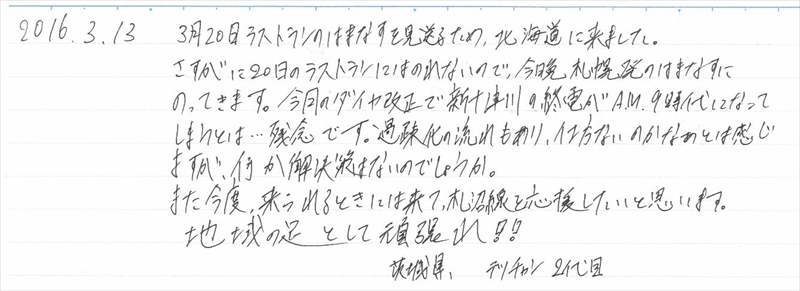 2016.3.13 3月20日ラストランのはまなすを見送るため、北海道に来ました。
さすがに20日のラストランにはのれないので、今晩札幌発のはまなすに
のってきます。今月のダイヤ改正で新十津川の終電がA.M.9時代になって
しまうとは…残念です。過疎化の流れもあり、仕方ないのかなあとは感じ
ますが、何か解決策はないのでしょうか。
また今度、来られるときには来て、札沼線を応援したいと思います。
地域の足として頑張れ!!
茨城県、テツチャン2代目